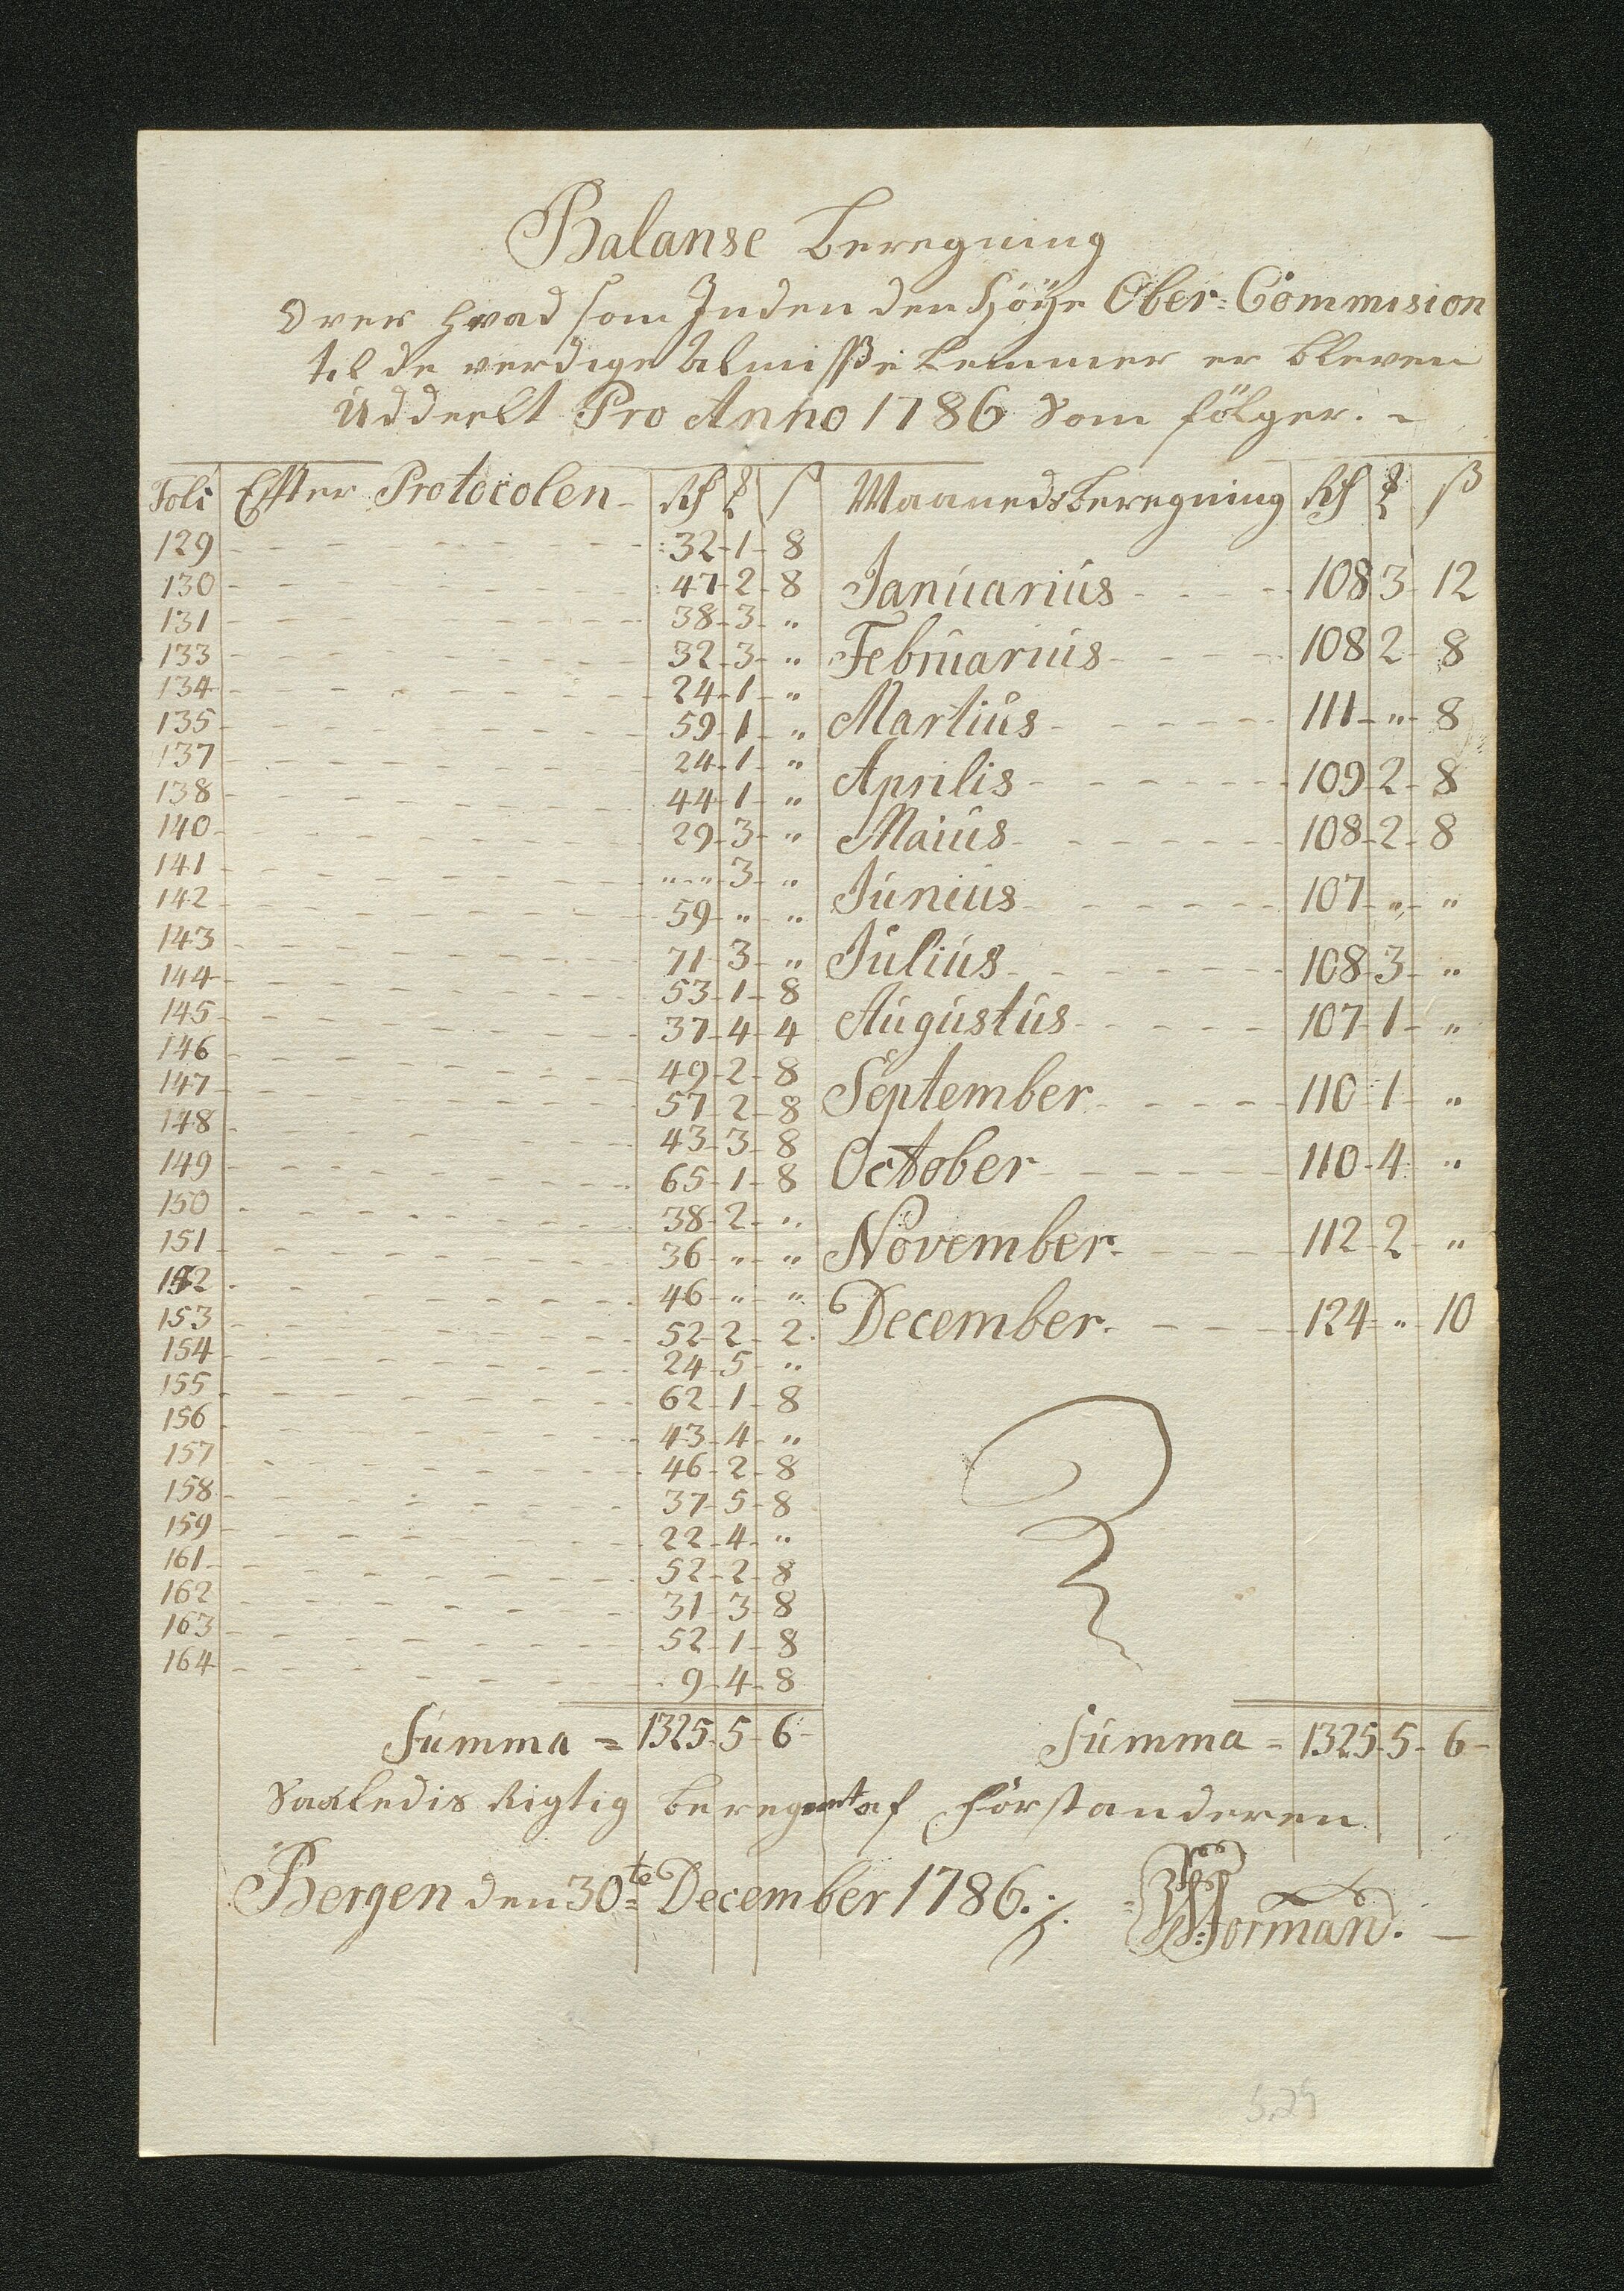 Balanse Beregning
Over hvad som Inden den Høÿe Ober-Commision
til de verdige Almisse Lemmer er bleven
Uddeelt Pro Anno 1786 Som følger. -
Foli Effter Protocolen - Rd ß Maanedsberegning Rd ß
129 - 32 - 1 - 8
130 - 47 - 2 - 8 Januarius - 108 3 - 12
131 - 38 - 3 - "
133 - 32 - 3 - " Februarius - 108 2 - 8
134 - 24 - 1 - "
135 - 59 - 1 - " Martius - 111 - " - 8
137 - 24 - 1 - "
138 - 44 - 1 - " Aprilis - 109 - 2 - 8
140 - 29 - 3 - " Maius - 108 - 2 - 8
141 - " - " 3 - "
142 - 59 - " - " Junius - 107 - " - "
143 - 71 - 3 - " Julius - 108 - 3 - "
144 - 53 - 1 - 8
145 - 37 - 4 - 4 Augustus - 107 - 1 - "
146 - 49 - 2 - 8
147 - 57 - 2 - 8 September - 110 - 1 - "
148 - 43 - 3 - 8
149 - 65 - 1 - 8 October - 110 - 4 - "
150 - 38 - 2 - "
151 - 36 - " - " November - 112 - 2 - "
152 - 46 - " - "
153 - 52 - 2 - 2 December - 124 - " - 10
154 - 24 - 5 - "
155 - 62 - 1 - 8
156 - 43 - 4 - "
157 - 46 - 2 - 8
158 - 37 - 5 - 8
159 - 22 - 4 - "
161 - 52 - 2 - 8
162 - 31 - 3 - 8
163 - 52 - 1 - 8
164 - 9 - 4 - 8
Summa = 1325 - 5 - 6 - Summa - 1325 - 5 - 6 -
Saaledis Rigtig beregnet af Forstanderen
Bergen den 30te December 1786. Forman. -